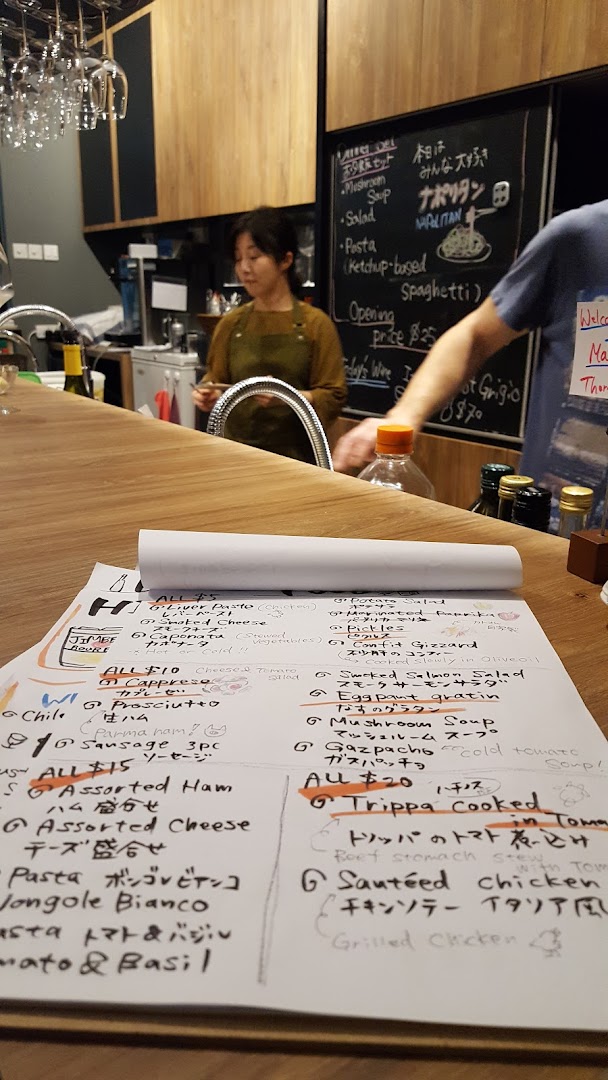 Dinner Set
・Mushroom
Soup
・Salad
・Pasta
(Ketchup-based
spaghetti)
Opening
price $25
本日は
みんな大好き
ナポリタン
NAPOLITAN
Today's Wine
Grigio
$70
Welco
Ma
Than
ALL $5
Liver Pasto (chicken)
レバーペースト
Smoked Cheese
スモークチーズ
Caponata (stewed vegetables)
カポナータ
Hot or Cold!!
Potato Salad
ポテサラ
Marinated Paprika
パプリカマリネ
Pickles
ピクルス
Confit Gizzard
(cooked slowly in Olive oil)
ALL $10
Cheese & Tomato
salad
Capprese
カプレーゼ
Prosciutto
生ハム
(Parma ham!)
Sausage 3pc
ソーセージ
Smoked Salmon Salad
スモークサーモンサラダ
Eggpant gratin
なすのグラタン
Mushroom Soup
マッシュルームスープ
Gazpacho
cold tomato
soup!
ガスパッチョ
JIMBE
WI
Chile
ALL $15
Assorted Ham
ハム盛合せ
Assorted Cheese
チーズ盛合せ
Pasta ボンゴレビアンコ
ongole Bianco
asta トマト&バジル
mato & Basil
ALL $20
ハチノス
Trippa cooked
in Toma
トリッパのトマト煮込け
Beef stomach stew
with Tom
Sautéed chicken
チキンソテー イタリア風
Grilled chicken